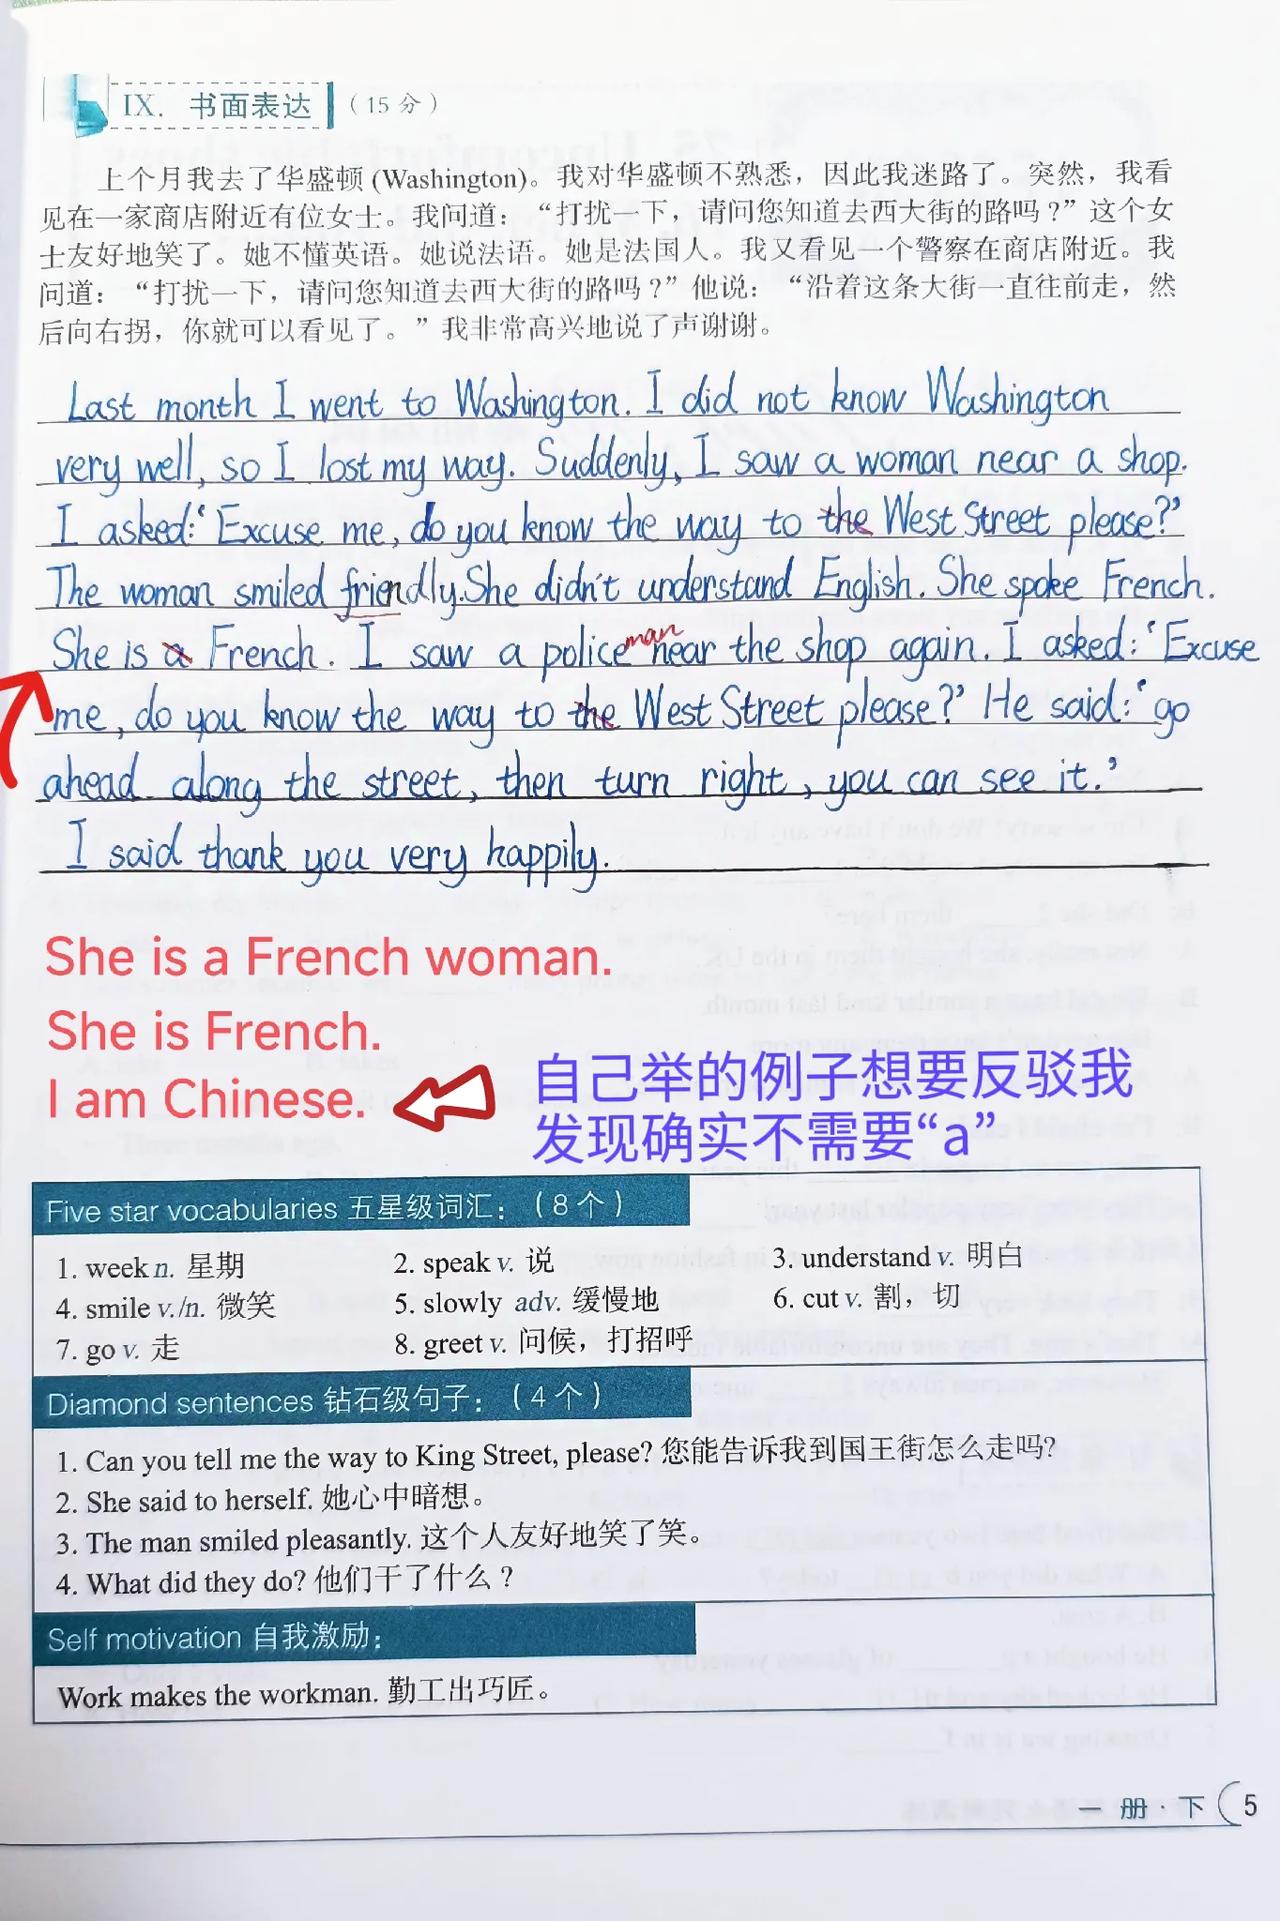 IX. 书面表达 （15 分）
上个月我去了华盛顿 (Washington)。我对华盛顿不熟悉，因此我迷路了。突然，我看
见在一家商店附近有位女士。我问道：“打扰一下，请问您知道去西大街的路吗？”这个女
士友好地笑了。她不懂英语。她说法语。她是法国人。我又看见一个警察在商店附近。我
问道：“打扰一下，请问您知道去西大街的路吗？”他说：“沿着这条大街一直往前走，然
后向右拐，你就可以看见了。”我非常高兴地说了声谢谢。
Last month I went to Washington. I did not know Washington
very well, so I lost my way. Suddenly, I saw a woman near a shop.
I asked:‘Excuse me, do you know the way to the West Street please?’
The woman smiled friendly.She didn't understand English. She spoke French.
She is a French. I saw a policeman near the shop again. I asked:‘Excuse
me, do you know the way to the West Street please?’ He said:‘go
ahead along the street, then turn right, you can see it.’
I said thank you very happily.
She is a French woman.
She is French.
I am Chinese.
自己举的例子想要反驳我
发现确实不需要“a”
Five star vocabularies 五星级词汇：（8 个）
1. week n. 星期 2. speak v. 说 3. understand v. 明白
4. smile v./n. 微笑 5. slowly adv. 缓慢地 6. cut v. 割，切
7. go v. 走 8. greet v. 问候，打招呼
Diamond sentences 钻石级句子：（4 个）
1. Can you tell me the way to King Street, please? 您能告诉我到国王街怎么走吗?
2. She said to herself. 她心中暗想。
3. The man smiled pleasantly. 这个人友好地笑了笑。
4. What did they do? 他们干了什么？
Self motivation 自我激励：
Work makes the workman. 勤工出巧匠。
一 册 · 下 5